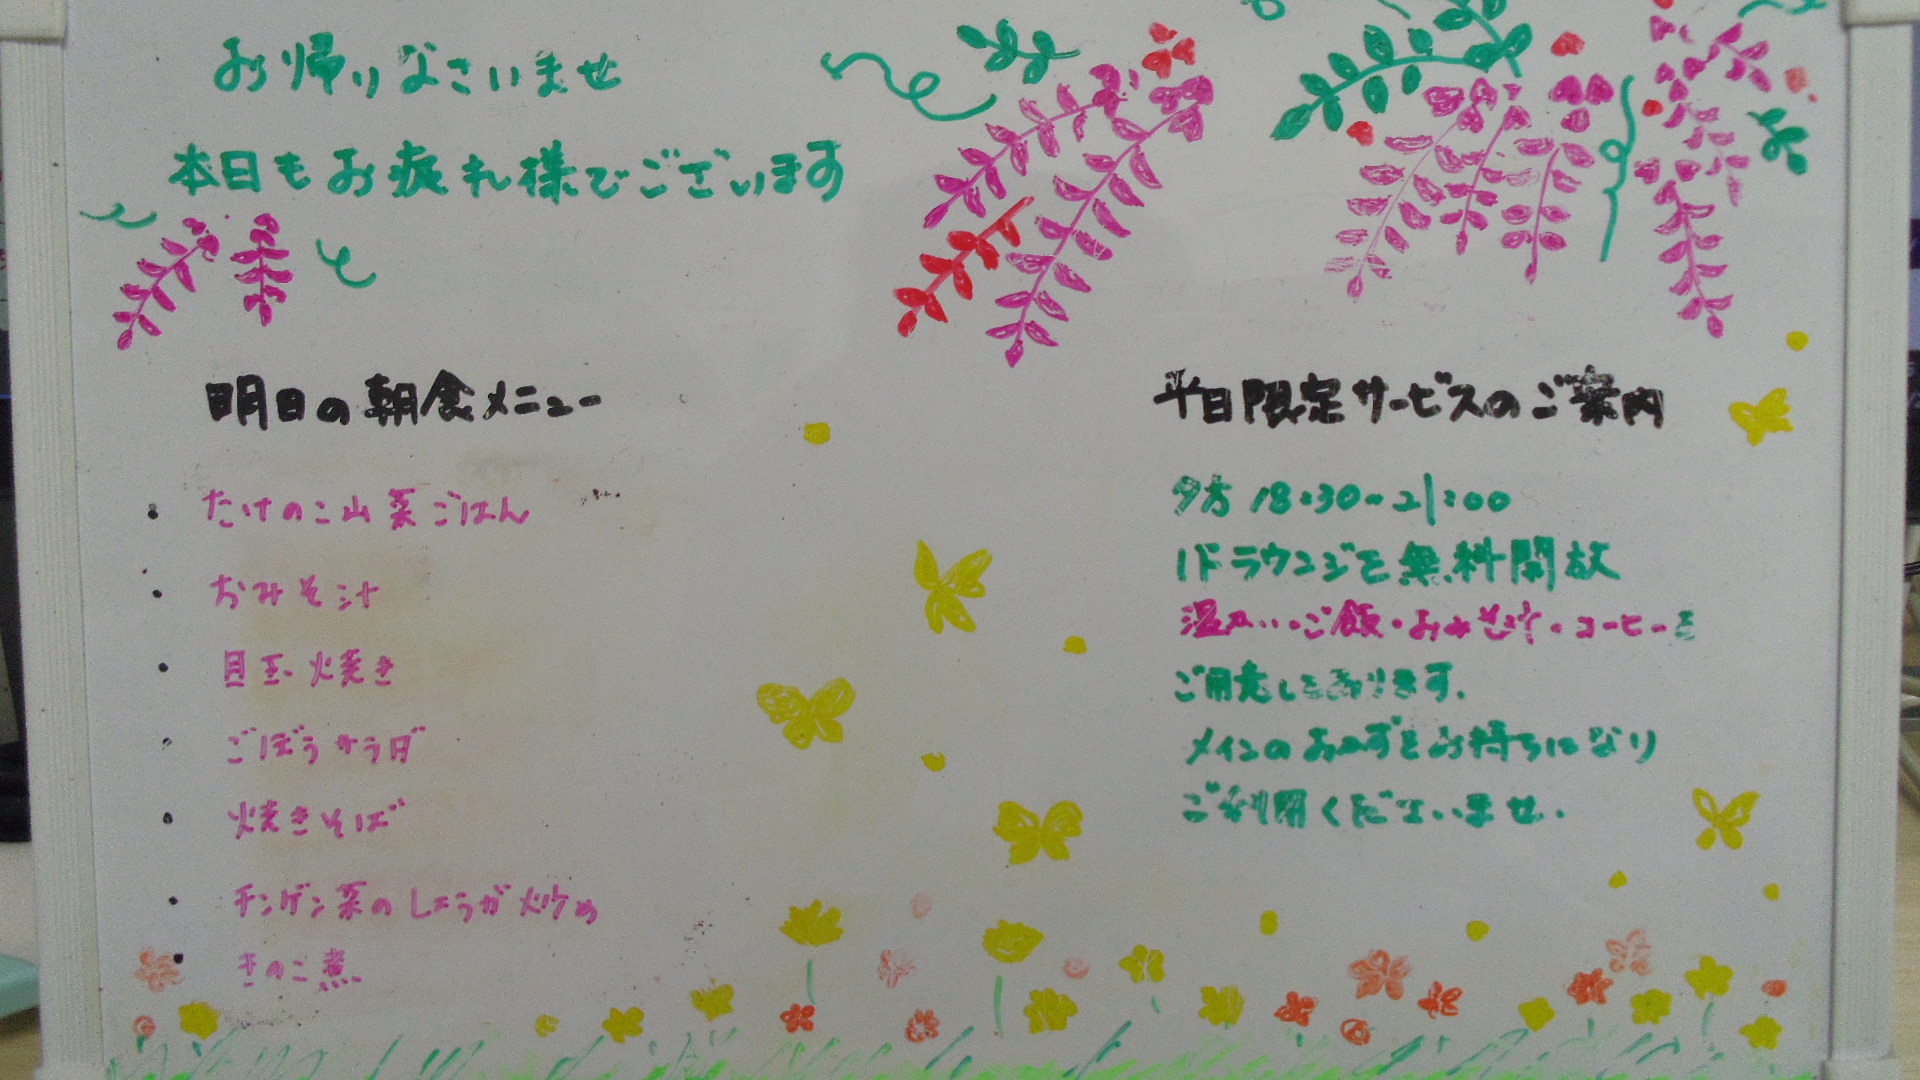 お帰りなさいませ
本日もお疲れ様でございます
明日の朝食メニュー
・たけのこ山菜ごはん
・おみそ汁
・目玉焼き
・ごぼうサラダ
・焼きそば
・チンゲン菜のしょうが炒め
・きのこ煮
平日限定サービスのご案内
夕方 18:30~21:00
1Fラウンジを無料開放
温かい・ご飯・おみそ汁・コーヒーを
ご用意しております。
メインのおかずをお持ちになり
ご利用くださいませ。